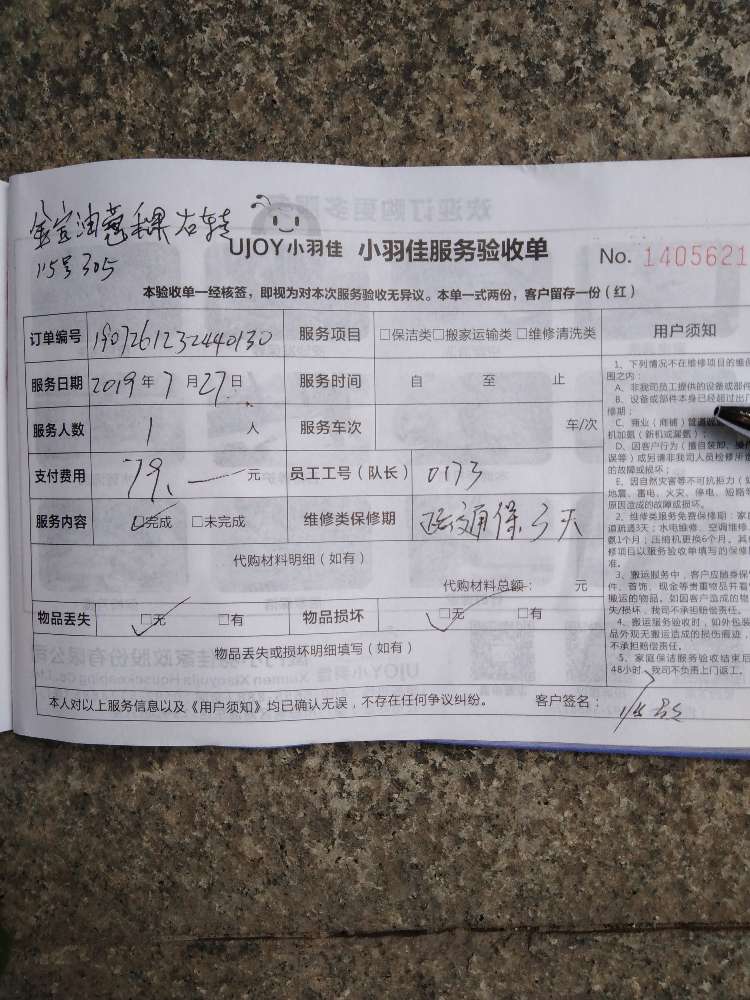 金宝油葱粿右转
115号305
UJOY小羽佳 小羽佳服务验收单
No. 1405621
本验收单一经核签，即视为对本次服务验收无异议。本单一式两份，客户留存一份（红）
订单编号 1907261232440130 服务项目 □保洁类□搬家运输类□维修清洗类
服务日期 2019年7月27日 服务时间 自 至 止
服务人数 1 人 服务车次 车/次
支付费用 79、— 元 员工工号（队长） 0173
服务内容 □完成 □未完成 维修类保修期 疏通保3天
代购材料明细（如有）
代购材料总额： 元
物品丢失 □无 □有 物品损坏 □无 □有
物品丢失或损坏明细填写（如有）
本人对以上服务信息以及《用户须知》均已确认无误，不存在任何争议纠纷。 客户签名：
用户须知
1、下列情况不在维修项目的维保
围之内：
A、非我司员工提供的设备或部件
B、设备或部件本身已经超过出厂
修期；
C、商业（商铺）管道
机加氨（新机或漏氨）；
D、因客户行为（擅自装卸、操
误等）或另请非我司人员检修所
的故障或损坏；
E、因自然灾害等不可抗拒力（如
地震、雷电、火灾、停电、短路等
原因造成的故障或损坏。
2、维修类服务免费保修期：家
道疏通3天；水电维修、空调维
氨1个月；压缩机更换6个月。其
修项目以服务验收单填写的保修
准。
3、搬运服务中，客户应随身保
件、首饰、现金等贵重物品并看
搬运的物品。如因客户造成的物
失/损坏，我司不承担赔偿责任。
4、搬运服务验收时，如外包装
品外观无搬运造成的损伤痕迹，
不承担赔偿责任。
5、家庭保洁服务验收结束后
48小时，我司不负责上门返工。